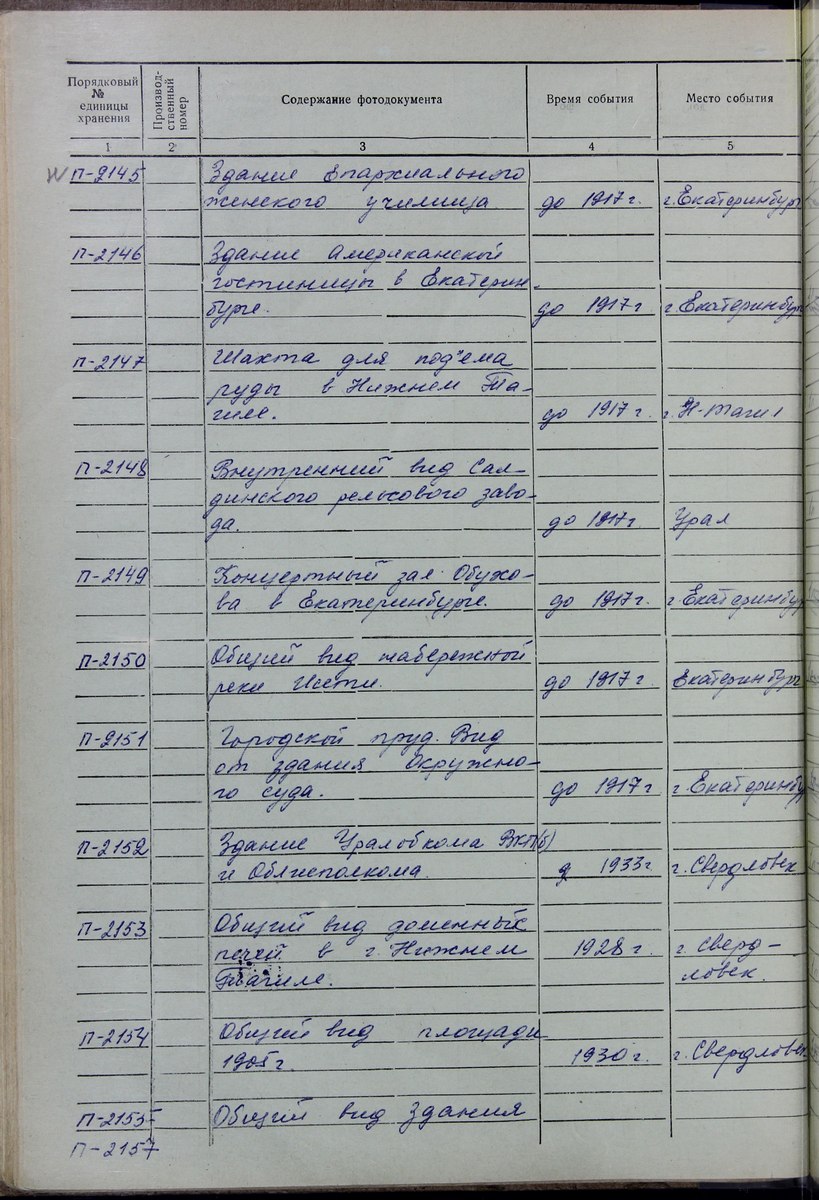 Порядковый № единицы хранения
Производ-ственный номер
Содержание фотодокумента
Время события
Место события
1 2 3 4 5
П-2145 Здание Епархиального
женского училища до 1917 г. г. Екатеринбург
П-2146 Здание Американской
гостиницы в Екатерин-
бурге. до 1917 г г. Екатеринбург
П-2147 Шахта для под"ема
руды в Нижнем Та-
гиле. до 1917 г. г. Н-Тагил
П-2148 Внутренний вид Сал-
динского рельсового заво-
да. до 1917 г Урал
П-2149 Концертный зал Обухо-
ва в Екатеринбурге. до 1917 г. г Екатеринбур
П-2150 Общий вид набережной
реки Исети. до 1917 г. Екатеринбург
П-2151 Городской пруд. Вид
от здания Окружно-
го суда. до 1917 г г. Екатеринбу
П-2152 Здание Уралобкома ВКП(б)
и Облисполкома. 1933 г. г. Свердловск
П-2153 Общий вид доменных
печей в г. Нижнем 1928 г. г. Сверд-
Тагиле. ловск.
П-2154 Общий вид площади
1905 г. 1930 г. г. Свердловск
П-2155- Общий вид здания
П-2157